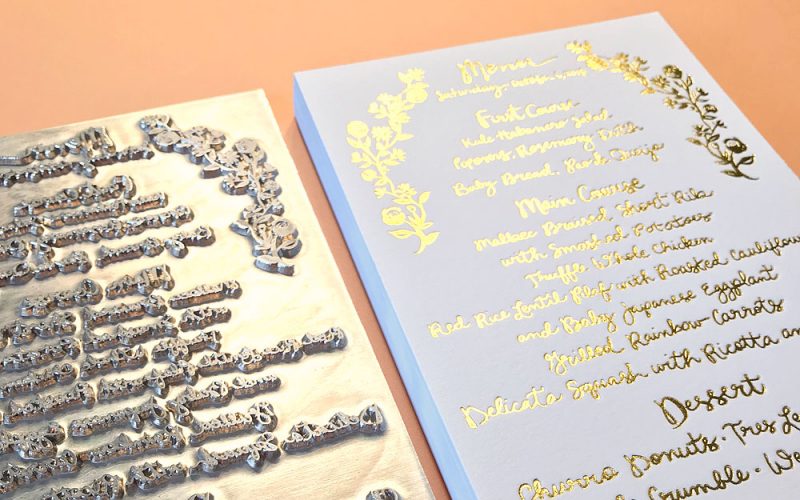 Menu
Saturday, October
First Course
Kale Habanero Salad
Popovers, Rosemary Butter
Baby Bread,
Main Course
Malbec Braised Short Ribs
with Smashed Potatoes
Truffle Whole Chicken
Red Rice Lentil Pilaf with Roasted Cauliflow
and Baby Japanese Eggplant
Grilled Rainbow Carrots
Delicata Squash with Ricotta an
Dessert
Churro Donuts · Tres Le
Crumble · We